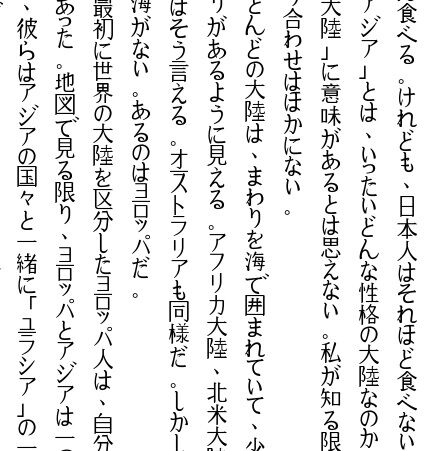 食べる。けれども、日本人はそれほど食べない
アジア」とは、いったいどんな性格の大陸なのか
大陸」に意味があるとは思えない。私が知る限
合わせはほかにない。
とんどの大陸は、まわりを海で囲まれていて、少
りがあるように見える。アフリカ大陸、北米大陸
はそう言える。オストラリアも同様だ。しかし
海がない。あるのはヨロッパだ。
最初に世界の大陸を区分したヨロッパ人は、自分
あった。地図で見る限り、ヨロッパとアジアは一つ
、彼らはアジアの国々と一緒に「ユラシア」の一